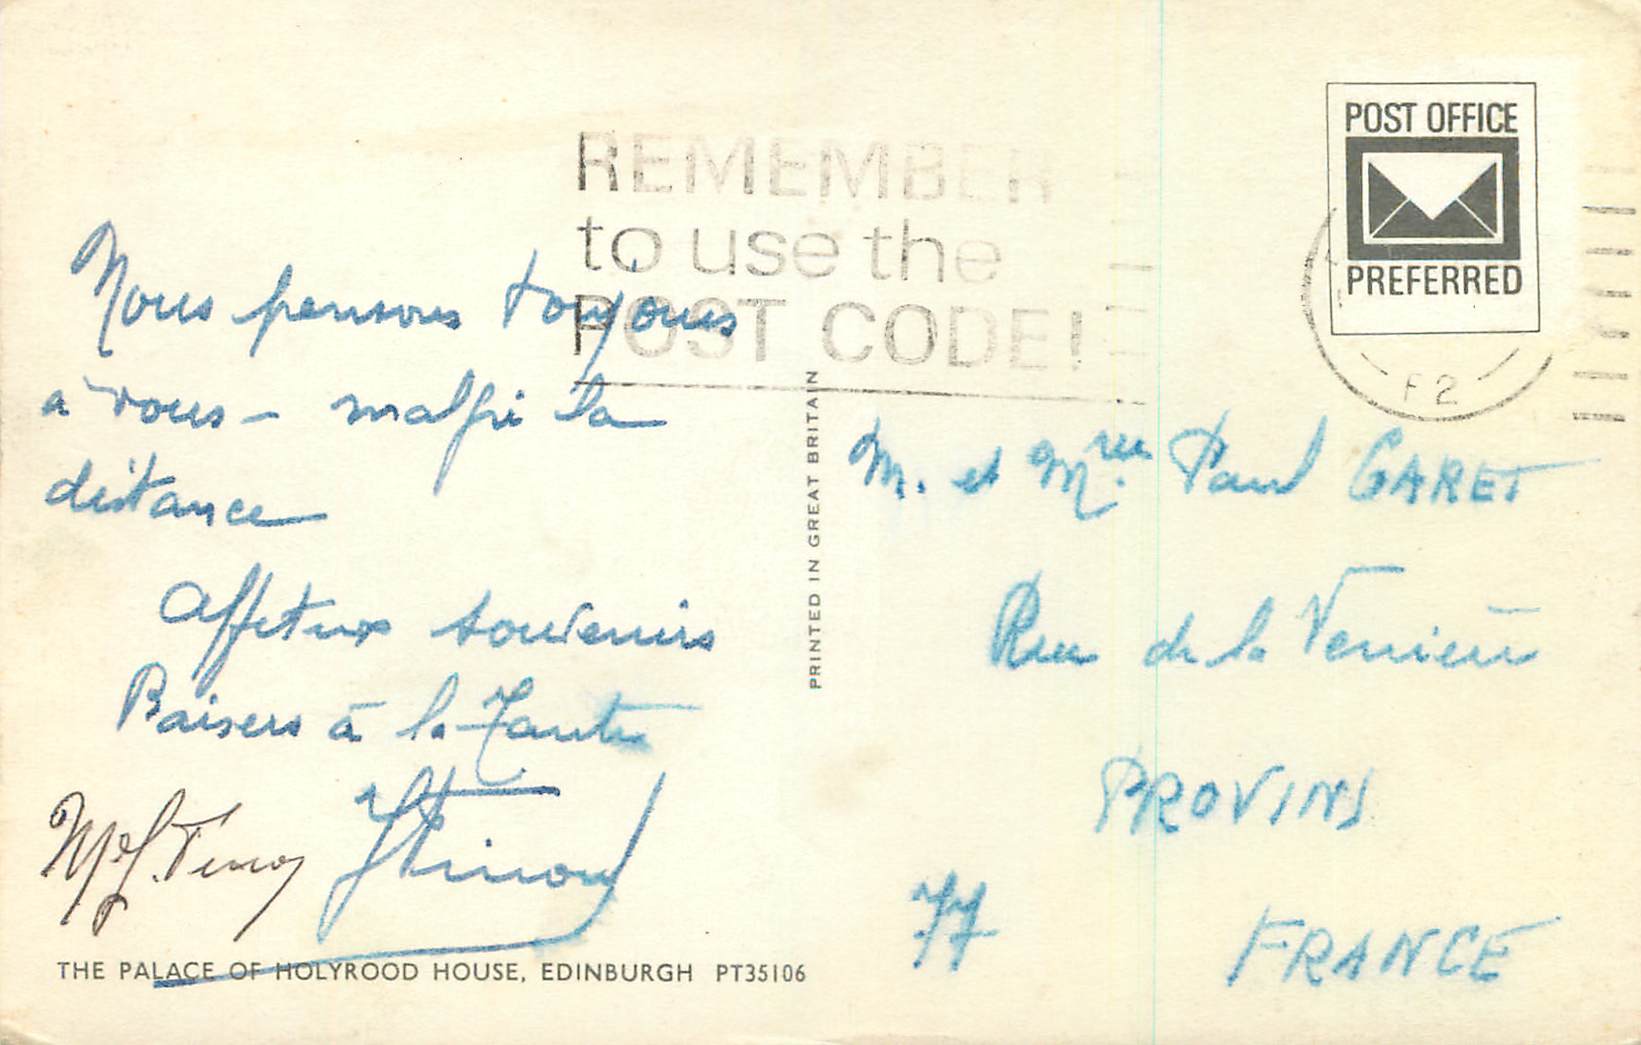 REMEMBER
to use the
POST CODE!
POST OFFICE
PREFERRED
F2
Nous pensons toujours
à vous - malgré la
distance
Affectueux souvenirs
Baisers à la Tante
PRINTED IN GREAT BRITAIN
M. et Mme Paul GARET
Rue de la
PROVINS
77
FRANCE
THE PALACE OF HOLYROOD HOUSE, EDINBURGH PT35106